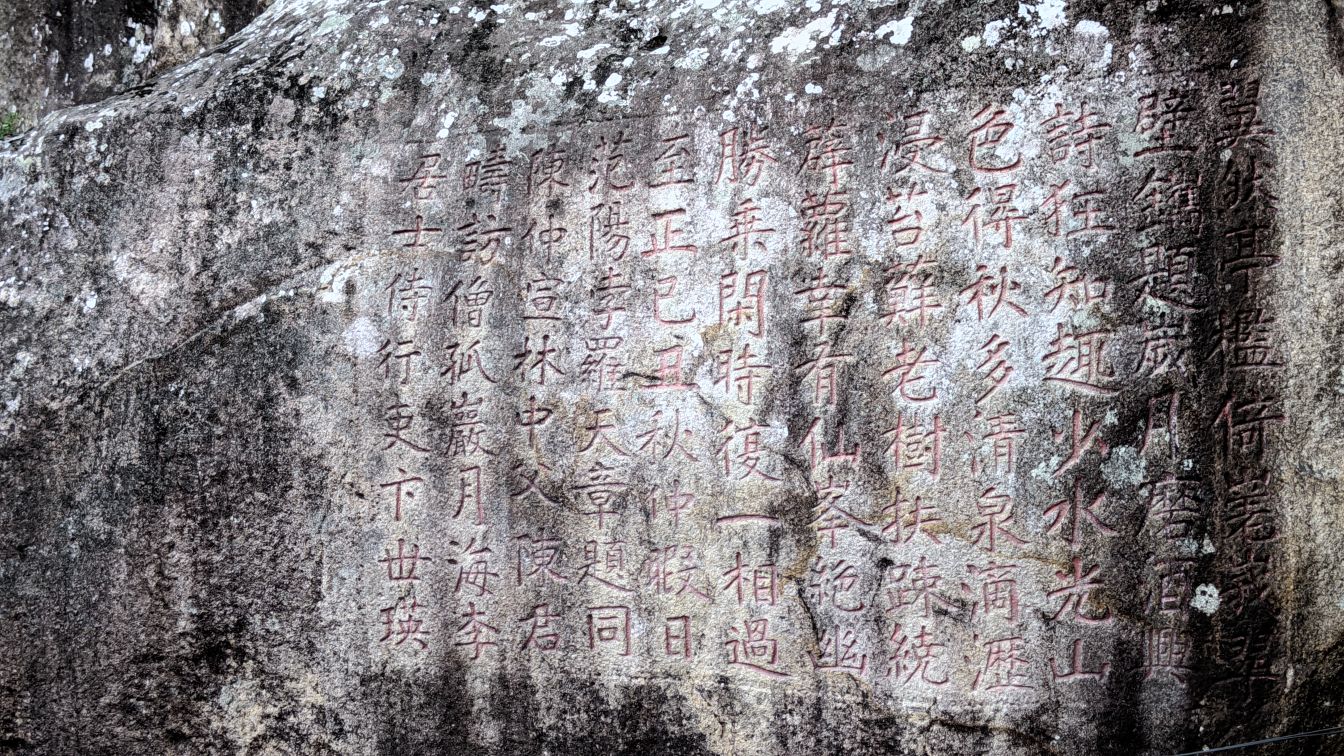 翼然亭檻倚著莪翠
壁鐫題歲月磨酒興
詩狂知趣少水光山
色得秋多清泉滴瀝
浸苔蘚老樹扶踈繞
薜蘿幸有仙峯絶幽
勝乘閑時復一相過
至正己丑秋仲暇日
范陽孛羅天章題同
陳仲宣林中父陳君
疇訪僧孤巖月海李
君士侍行吏卞世瑛